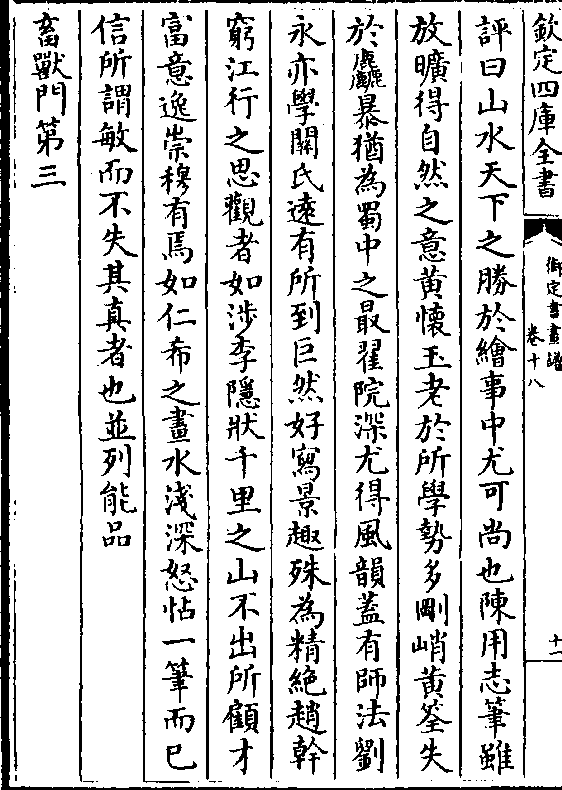 欽定四庫全書
御定書畫譜
卷十八
十一
評曰山水天下之勝於繪事中尤可尚也陳用志筆雖
放曠得自然之意黃懷玉老於所學勢多剛峭黃筌失
於麤暴猶為蜀中之最翟院深尤得風韻蓋有師法劉
永亦學關氏遠有所到巨然好寫景趣殊為精絶趙幹
窮江行之思觀者如涉李隱狀千里之山不出所顧才
富意逸崇穆有焉如仁希之畫水淺深怒怗一筆而已
信所謂敏而不失其真者也並列能品
畜獸門第三